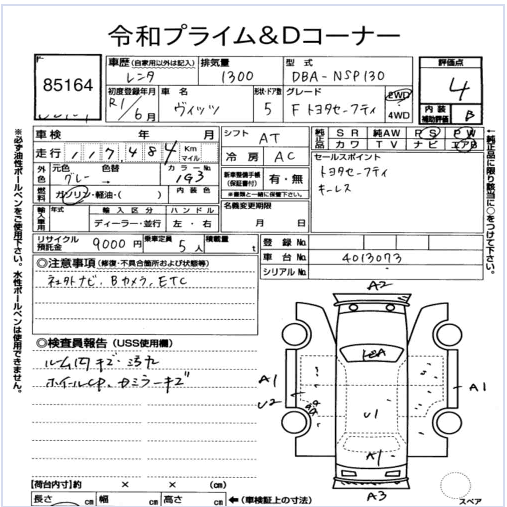 令和プライム&Dコーナー
85164
車歴 (自家用以外は記入) レンタ
排気量 1300
型式 DBA-NSP130
評価点 4
初度登録年月 R1/6月
車名 ヴィッツ
形状・ドア数 5
グレード F トヨタセーフティ
2WD
4WD
内装補助評価 B
車検 年 月
シフト AT
純正品 SR 純AW PS PW
カワ TV ナビ エアB
走行 117,484 Km マイル
冷房 AC
セールスポイント
トヨタセーフティ
キーレス
外色 元色 グレー 色替 カラーNo 1G3
新車整備手帳(保証書付) 有・無
※書類と一緒に保管下さい。
燃料 ガソリン・軽油・( ) 内装色
名義変更期限
月 日
輸入車用 年式 輸入区分 ハンドル
ディーラー・並行 左・右
リサイクル預託金 9000 円 乗車定員 5 人 積載量 t
登録No.
車台No. 4013073
シリアルNo.
◎注意事項 (修復・不具合箇所および状態等)
社外ナビ、Bカメラ、ETC
◎検査員報告 (USS使用欄)
ルーム内キズ・汚れ
ホイールCP、カミラーキズ
A2
A1
U2
U1
A1
A1
A3
【荷台内寸】約 × × (cm)
長さ cm 幅 cm 高さ cm ←(車検証上の寸法)
スペア
※必ず油性ボールペンをご使用下さい。水性ボールペンは使用できません。
←純正品に限り該当に○をつけて下さい。